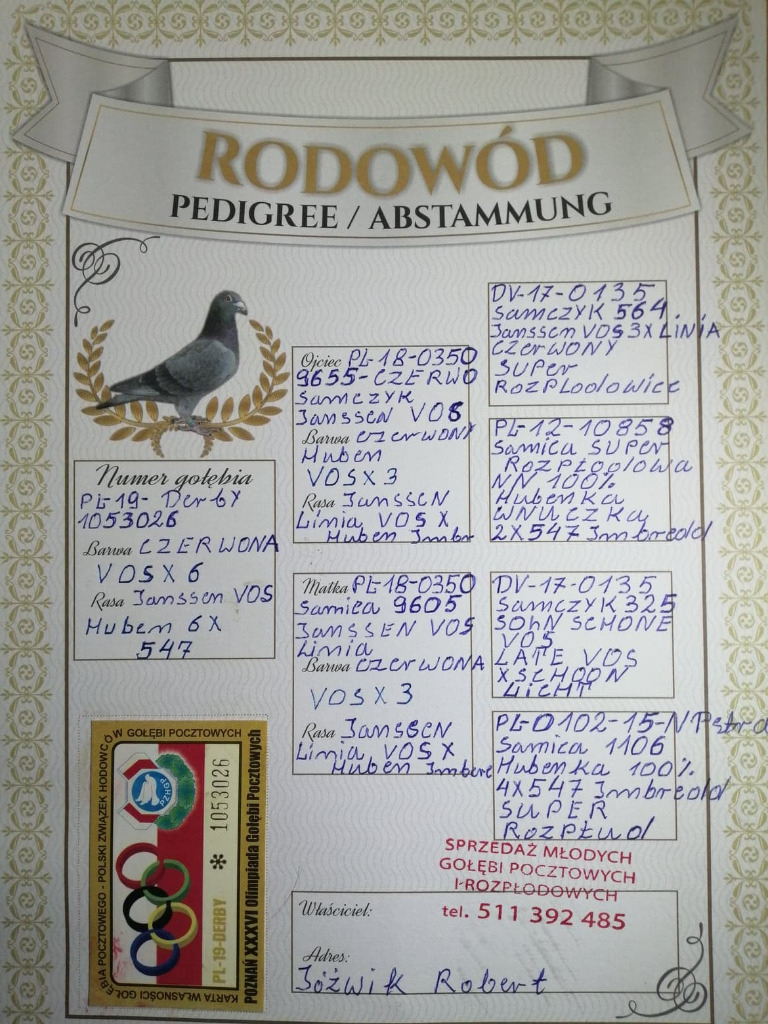 RODOWÓD
PEDIGREE / ABSTAMMUNG
Numer gołębia
PL-19- Derby
1053026
Barwa CZERWONA
VOS X 6
Rasa Janssen VOS
Huben 6X
547
Ojciec PL-18-0350
9655-CZERWO
Samczyk
Janssen VOS
Barwa CZERWONY
Huben
VOS X 3
Rasa Janssen
Linia VOS X
Huben Imbr
Matka PL-18-0350
Samica 9605
JANSSEN VOS
Linia
Barwa CZERWONA
VOS X 3
Rasa Janssen
Linia VOS X
Huben Imbre
DV-17-0135
Samczyk 564.
Janssen VOS 3X LINIA
CZERWONY
SUPER
ROZPLODOWIEC
PL-12-10858
Samica SUPER
ROZPŁODOWA
NN 100%
Hubenka
WNUCZKA
2X547 Imbreold
DV-17-0135
Samczyk 325
SOHN SCHONE
VOS
LATE VOS
XSCHOON
LICHT
PL-0102-15-N Pstra
Samica 1106
Hubenka 100%
4X547 Imbreold
SUPER
ROZPŁud
SPRZEDAŻ MŁODYCH
GOŁĘBI POCZTOWYCH
I ROZPŁODOWYCH
tel. 511 392 485
Właściciel:
Adres:
Jóźwik Robert
KARTA WŁASNOŚCI GOŁĘBIA POCZTOWEGO - POLSKI ZWIĄZEK HODOWCÓW GOŁĘBI POCZTOWYCH
PZHGP
PL-19-DERBY * 1053026
POZNAŃ XXXVI Olimpiada Gołębi Pocztowych